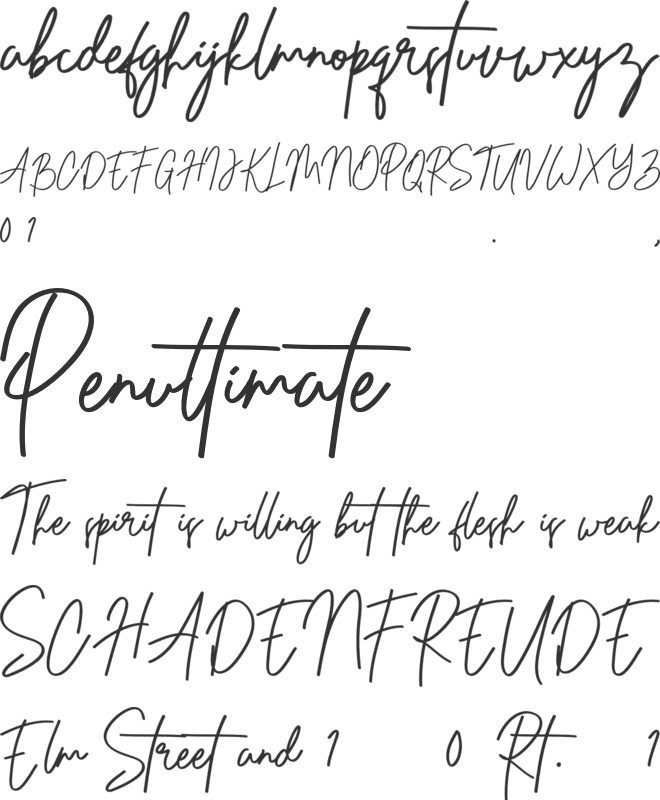 abcdefghijklmnopqrstuvwxyz
ABCDEFGHIJKLMNOPQRSTUVWXYZ
0 1 . ,
Penultimate
The spirit is willing but the flesh is weak
SCHADENFREUDE
Elm Street and 1 0 Rt. 1